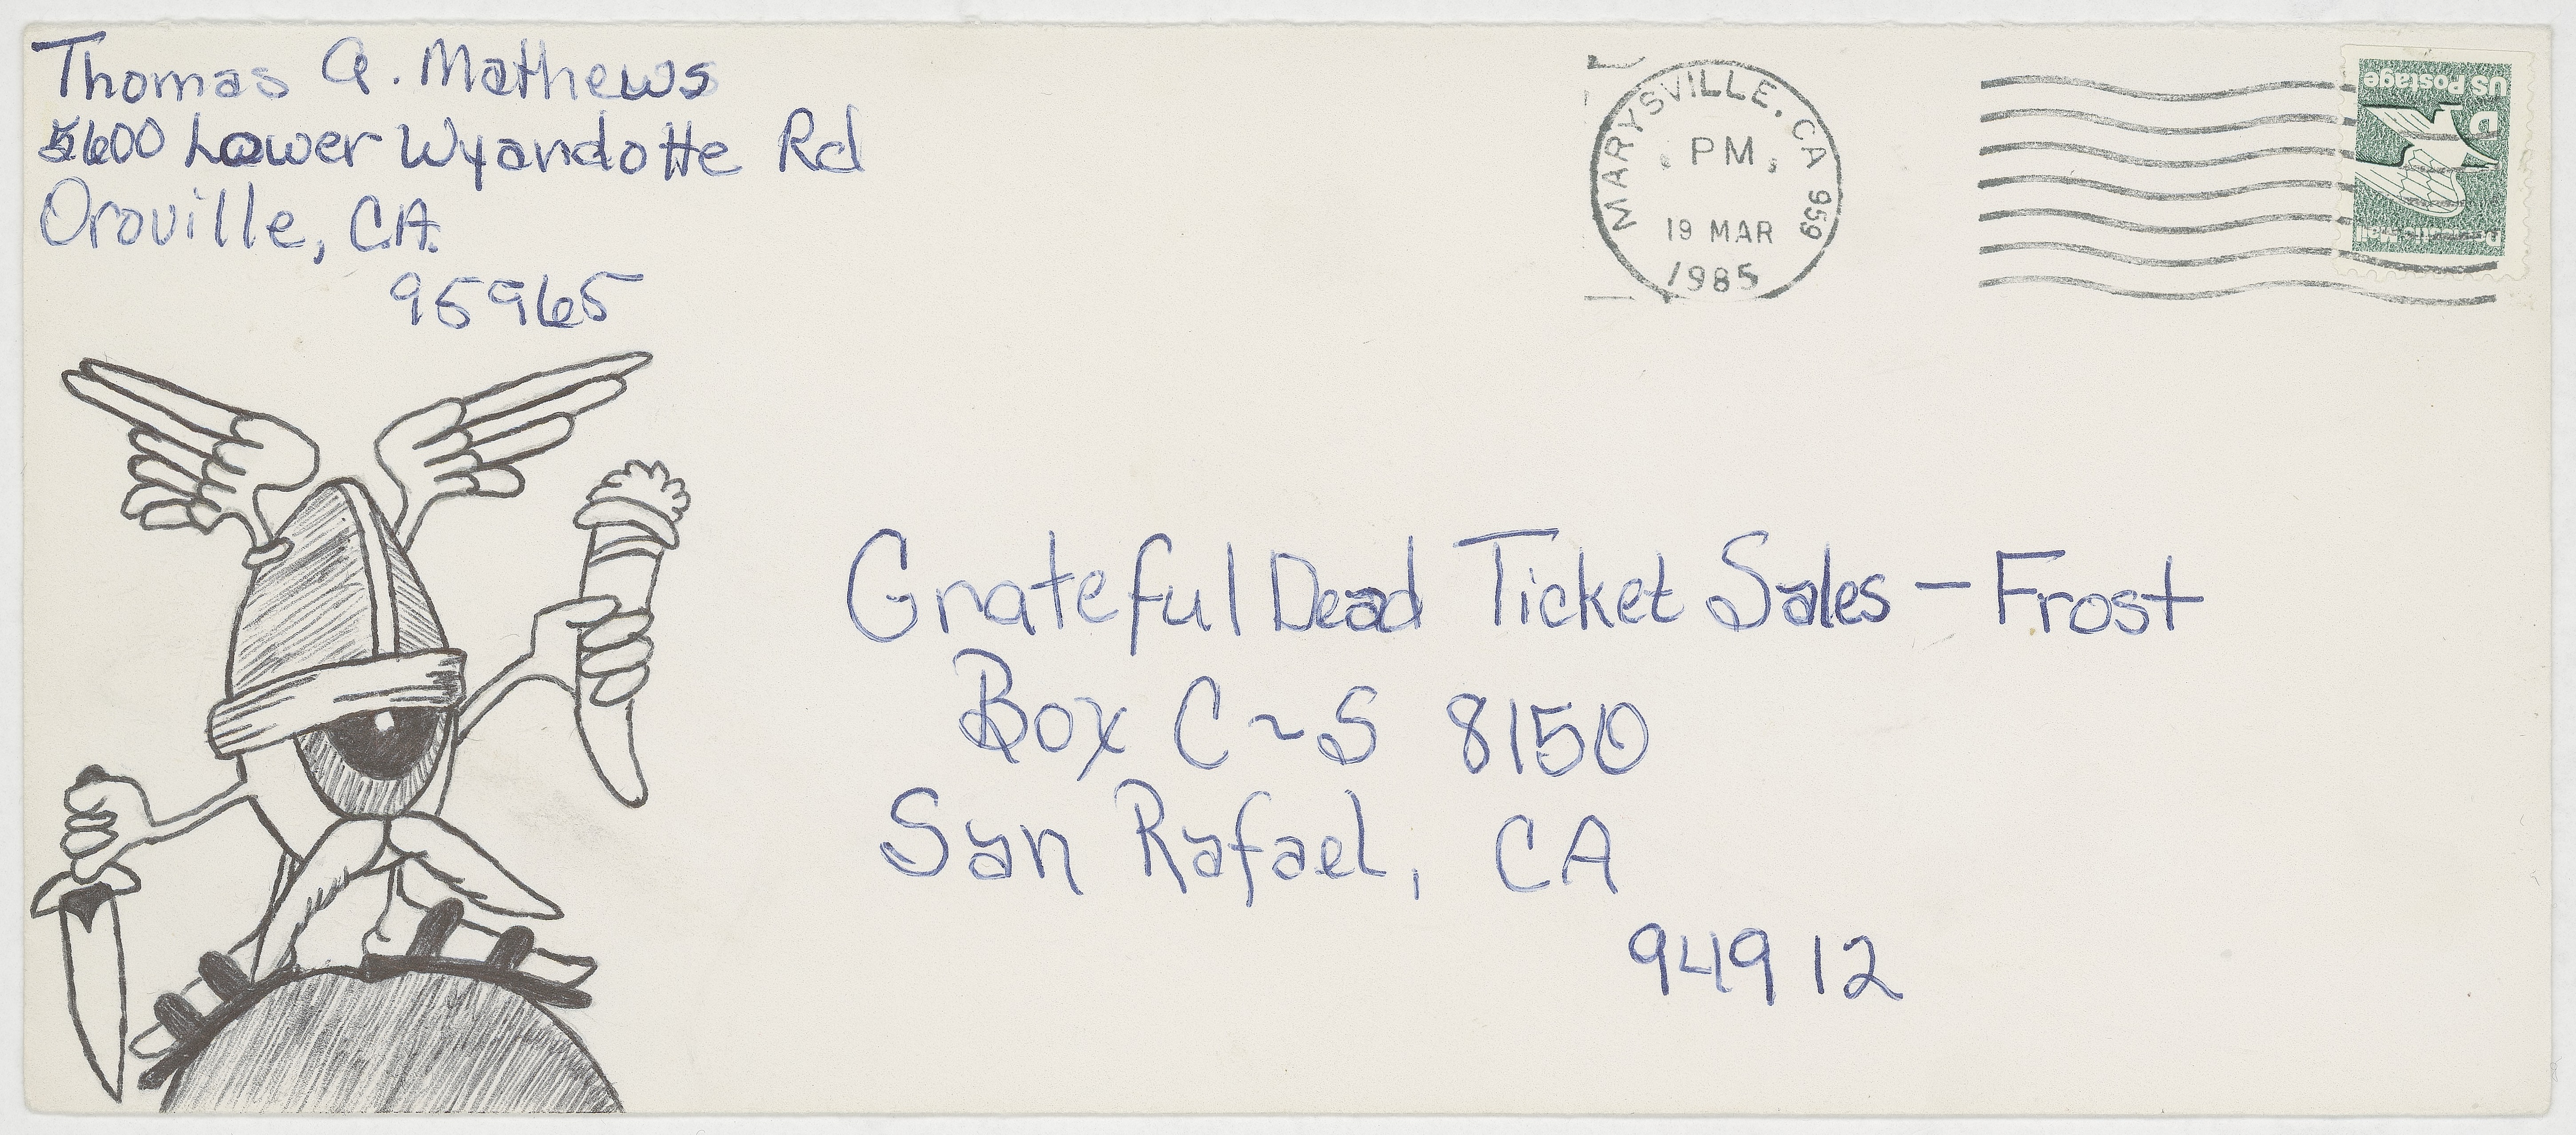 Thomas A. Mathews
5600 Lower Wyandotte Rd
Oroville, C.A.
95965
MARYSVILLE, CA 959
PM
19 MAR
1985
US Postage
D
Domestic Mail
Grateful Dead Ticket Sales - Frost
Box C~S 8150
San Rafael, CA
94912